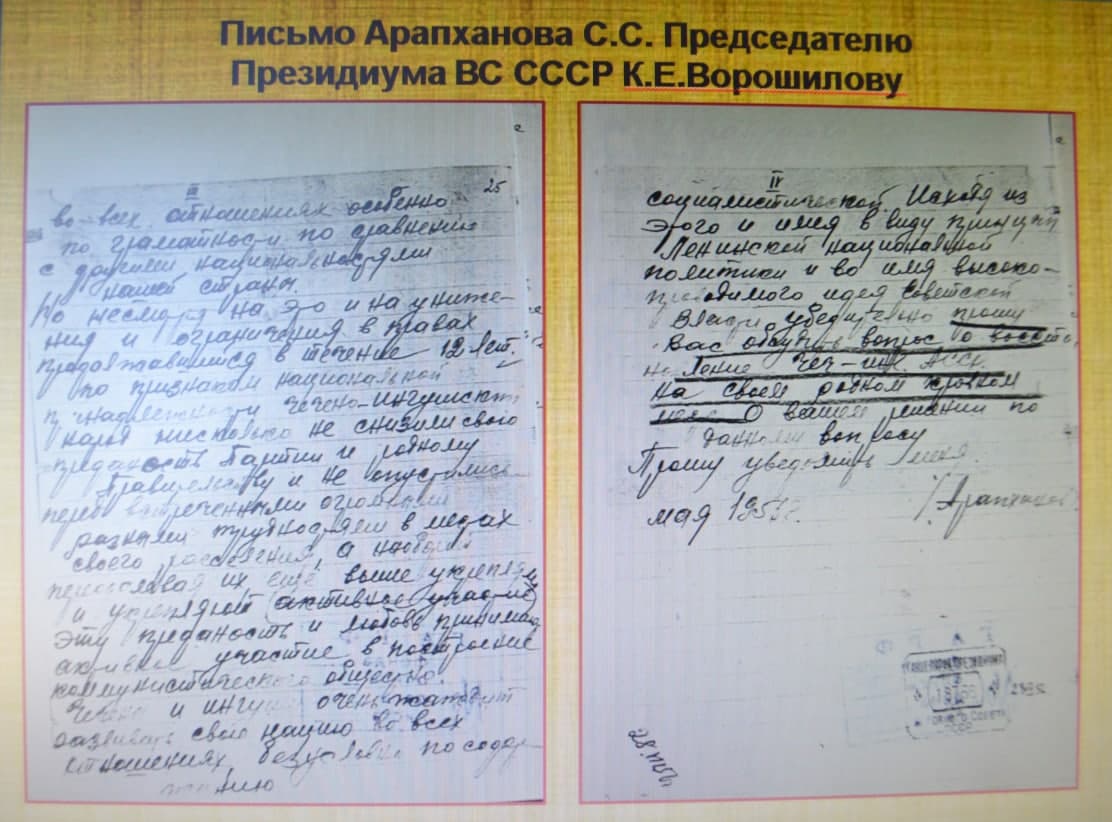 Письмо Арапханова С.С. Председателю
Президиума ВС СССР К.Е.Ворошилову
III
25
во всех отношениях особенно
по граматности по сравнению
с другими национальностями
нашей страны.
Но несмотря на это и на униже-
ния и ограничения в правах
продолжавшиеся в течение 12 лет.
по признакам национальной
принадлежности чечено-ингушский
народ нисколько не снизили свого
преданость Партии и родному
Правительству и не опустились
перед встреченными огромными
разными трудностями в местах
своего расселения, а наоборот
их ещё выше укрепля
и укрепляют (активное участие)
эту преданость и любовь принимая
активное участие в построение
коммунистического общества.
и очень
развивать свою нацию во всех
отношениях, безусловно по содер-
жанию
IV
социалистической Исходя из
этого и имея в виду принцип
Ленинской национальной
политики и во имя высоко-
идея Советской
Власти, убедительно прошу
Вас обсудить вопрос о восста
новление Чеч-инг. АССР.
на своем родном
О вашем решении по
данному вопросу
Прошу уведомить меня.
мая 195 г.
/Арапханов